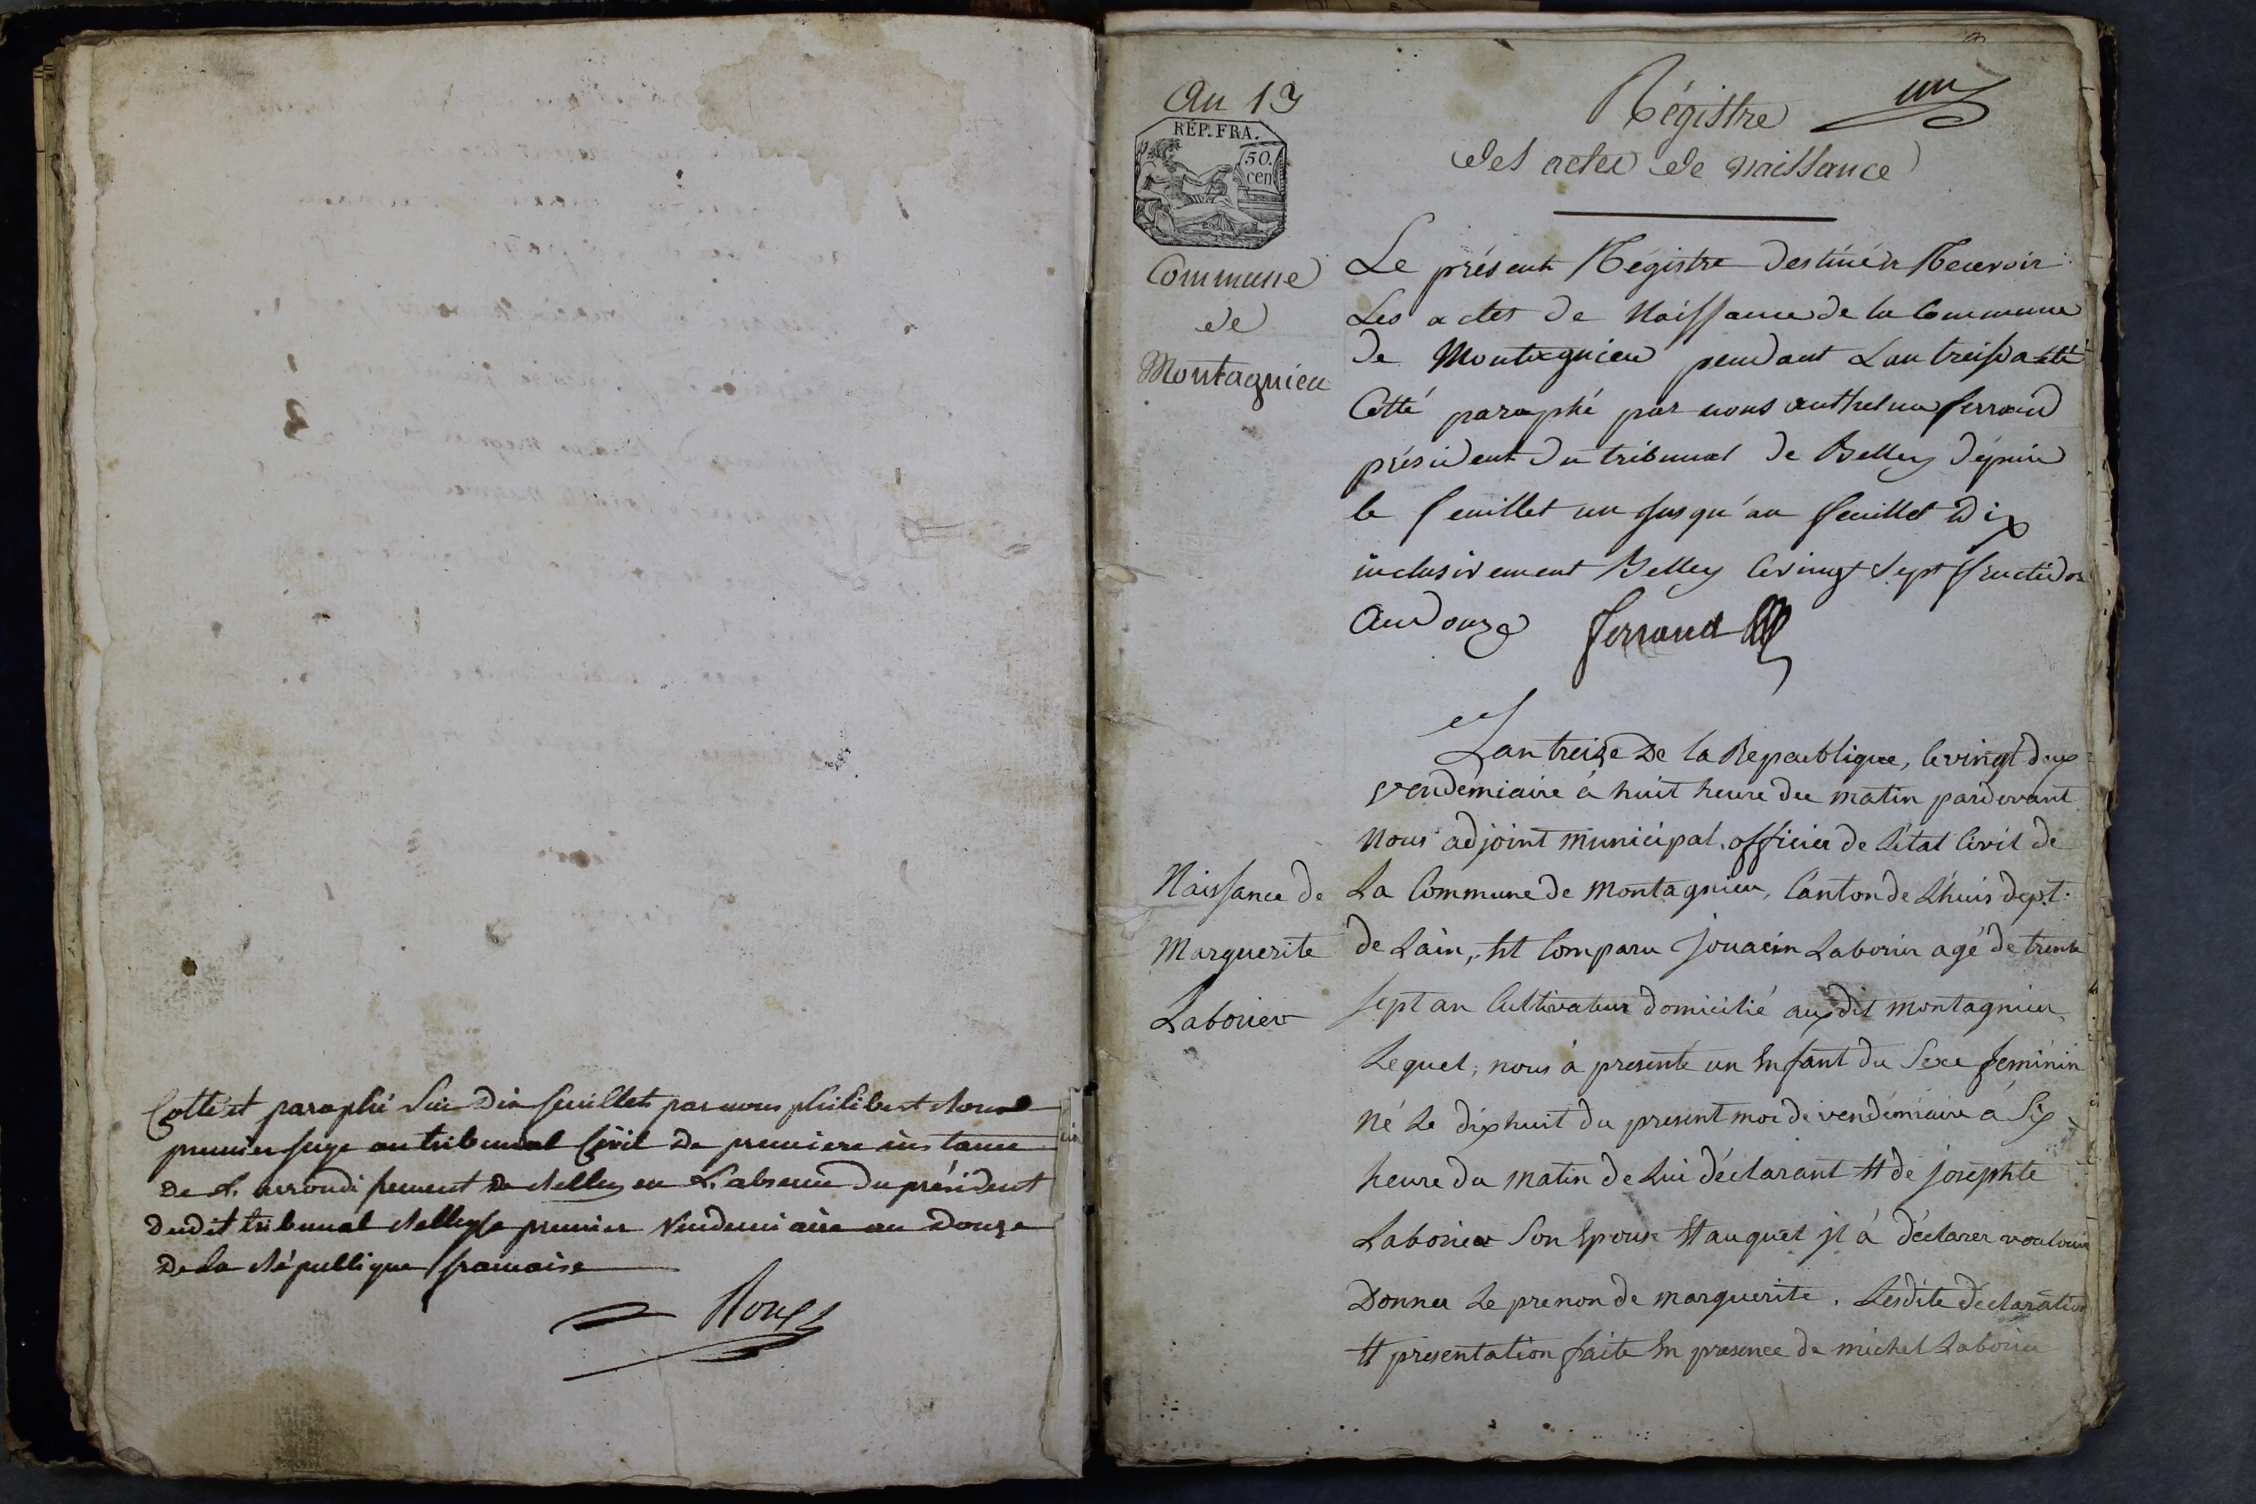 Cotté et paraphé Sur Dix feuillets par nous philibert Roux
premier juge au tribunal Civil De premiere instance
De L'arrondissement De Belley en L'absence Du président
Dudit tribunal Belley le premier Vendemiaire an Douze
De La République francaise
Roux
An 13
RÉP. FRA.
50.
cen
Commune
de
Montagnieu
Régistre
un
des actes de naissance
Le présent Régistre destiné à Recevoir
Les actes de Naissance de la Commune
de Montagnieu pendant L'an treise a été
Cotté paraphé par nous anthelme ferrand
président du tribunal de Belley dépuis
le feuillet un jusqu'au feuillet dix
inclusivement Belley le vingt sept fructidor
an douze ferrand
Naissance de
Marguerite
Laborier
L'an treize De la Republique, le vingt deux
vendémiaire à huit heure du matin pardevant
Nous adjoint municipal, officier de L'état Civil de
La Commune de Montagnieu, Canton de Lhuis dept.
de Lain, Est Comparu Jouacin Laborier agé de trente
sept an Cultivateur domicilié auxdit montagnieu
Lequel, nous à presenté un Enfant du Sexe feminin
Né Le dix huit du present moi de vendémiaire à Six
heure du matin de Lui déclarant Et de josephte
Laborier Son Epouse Et auquel jl à déclarer vouloir
Donner Le prenon de marguerite. Lesdite déclaration
Et presentation faite En presence de michel Laborier